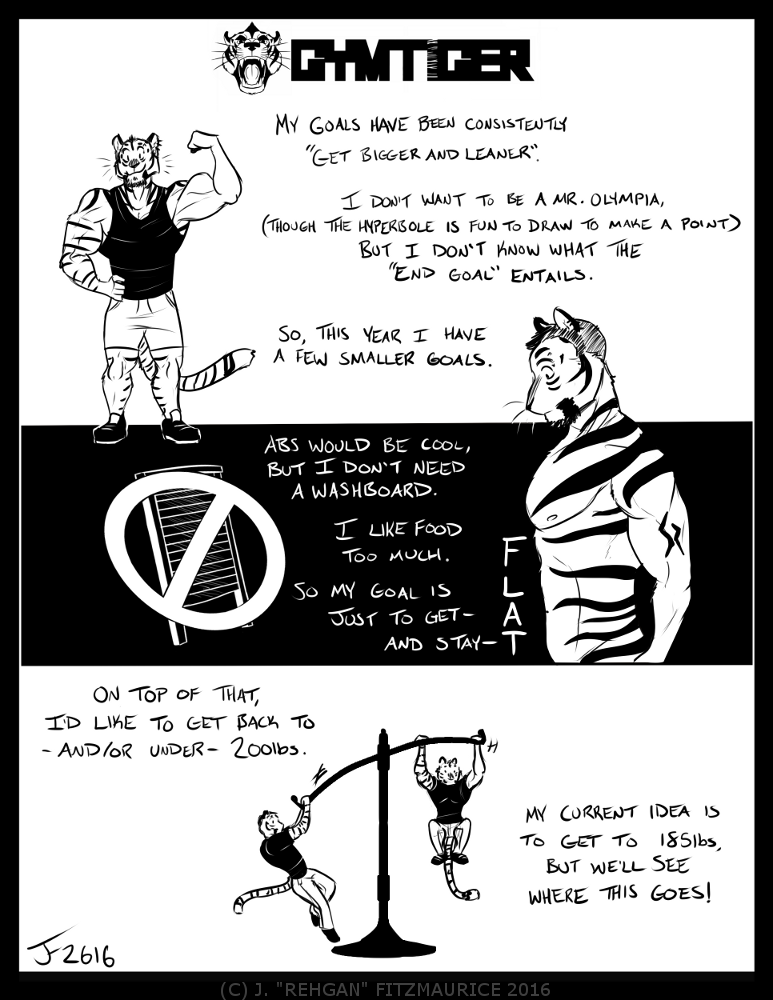 GYMTIGER
MY GOALS HAVE BEEN CONSISTENTLY
"GET BIGGER AND LEANER".
I DON'T WANT TO BE A MR. OLYMPIA,
(THOUGH THE HYPERBOLE IS FUN TO DRAW TO MAKE A POINT)
BUT I DON'T KNOW WHAT THE
"END GOAL" ENTAILS.
SO, THIS YEAR I HAVE
A FEW SMALLER GOALS.
ABS WOULD BE COOL,
BUT I DON'T NEED
A WASHBOARD.
I LIKE FOOD
TOO MUCH.
SO MY GOAL IS
JUST TO GET-
AND STAY-
FLAT
ON TOP OF THAT,
I'D LIKE TO GET BACK TO
- AND/OR UNDER- 200lbs.
MY CURRENT IDEA IS
TO GET TO 185lbs,
BUT WE'LL SEE
WHERE THIS GOES!
JF 2616
(C) J. "REHGAN" FITZMAURICE 2016